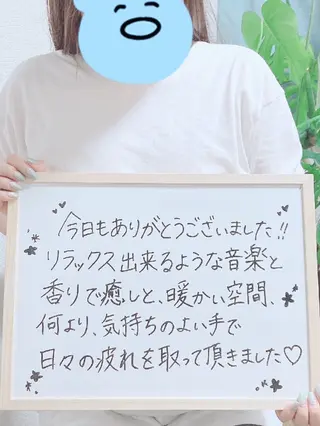 今日もありがとうございました!!
リラックス出来るような音楽と
香りで癒しと、暖かい空間、
何より、気持ちのよい手で
日々の疲れを取って頂きました♡